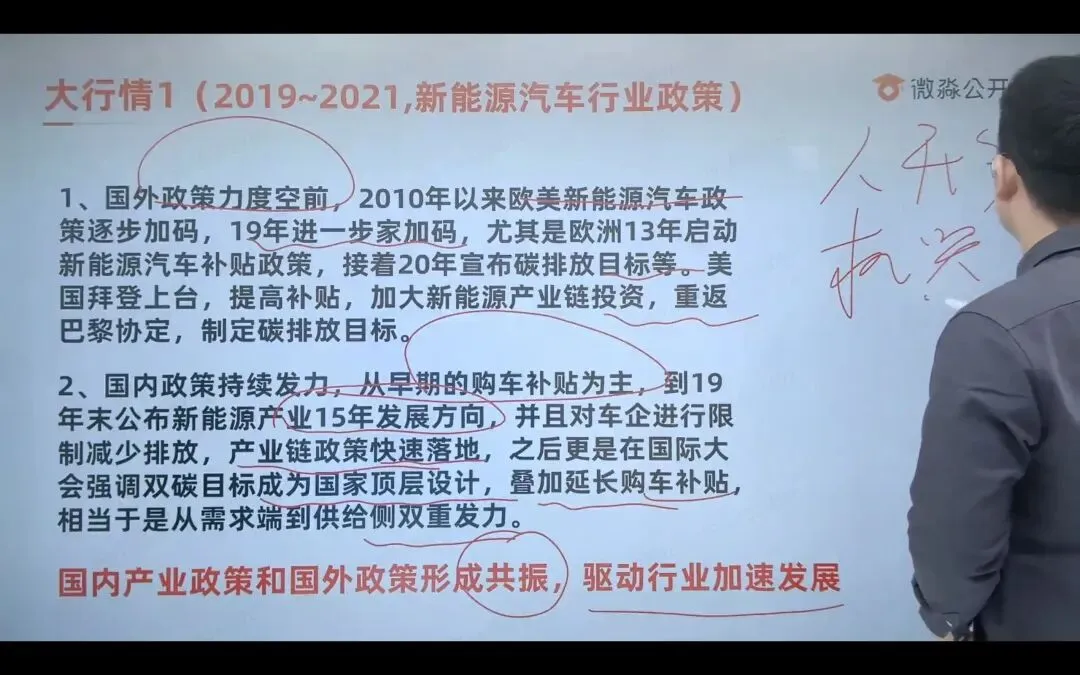 大行情1（2019~2021,新能源汽车行业政策）
微淼公开
人无
1、国外政策力度空前，2010年以来欧美新能源汽车政
策逐步加码，19年进一步家加码，尤其是欧洲13年启动
新能源汽车补贴政策，接着20年宣布碳排放目标等。美
国拜登上台，提高补贴，加大新能源产业链投资，重返
巴黎协定，制定碳排放目标。
2、国内政策持续发力，从早期的购车补贴为主，到19
年末公布新能源产业15年发展方向，并且对车企进行限
制减少排放，产业链政策快速落地，之后更是在国际大
会强调双碳目标成为国家顶层设计，叠加延长购车补贴，
相当于是从需求端到供给侧双重发力。
国内产业政策和国外政策形成共振，驱动行业加速发展